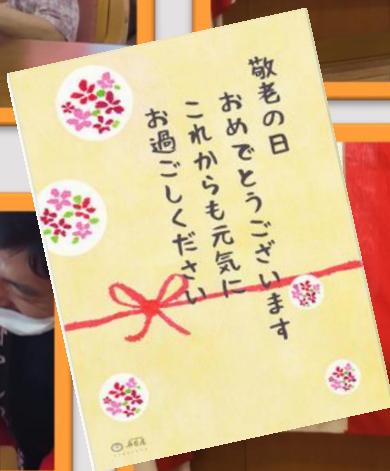 敬老の日
おめでとうございます
これからも元気に
お過ごしください